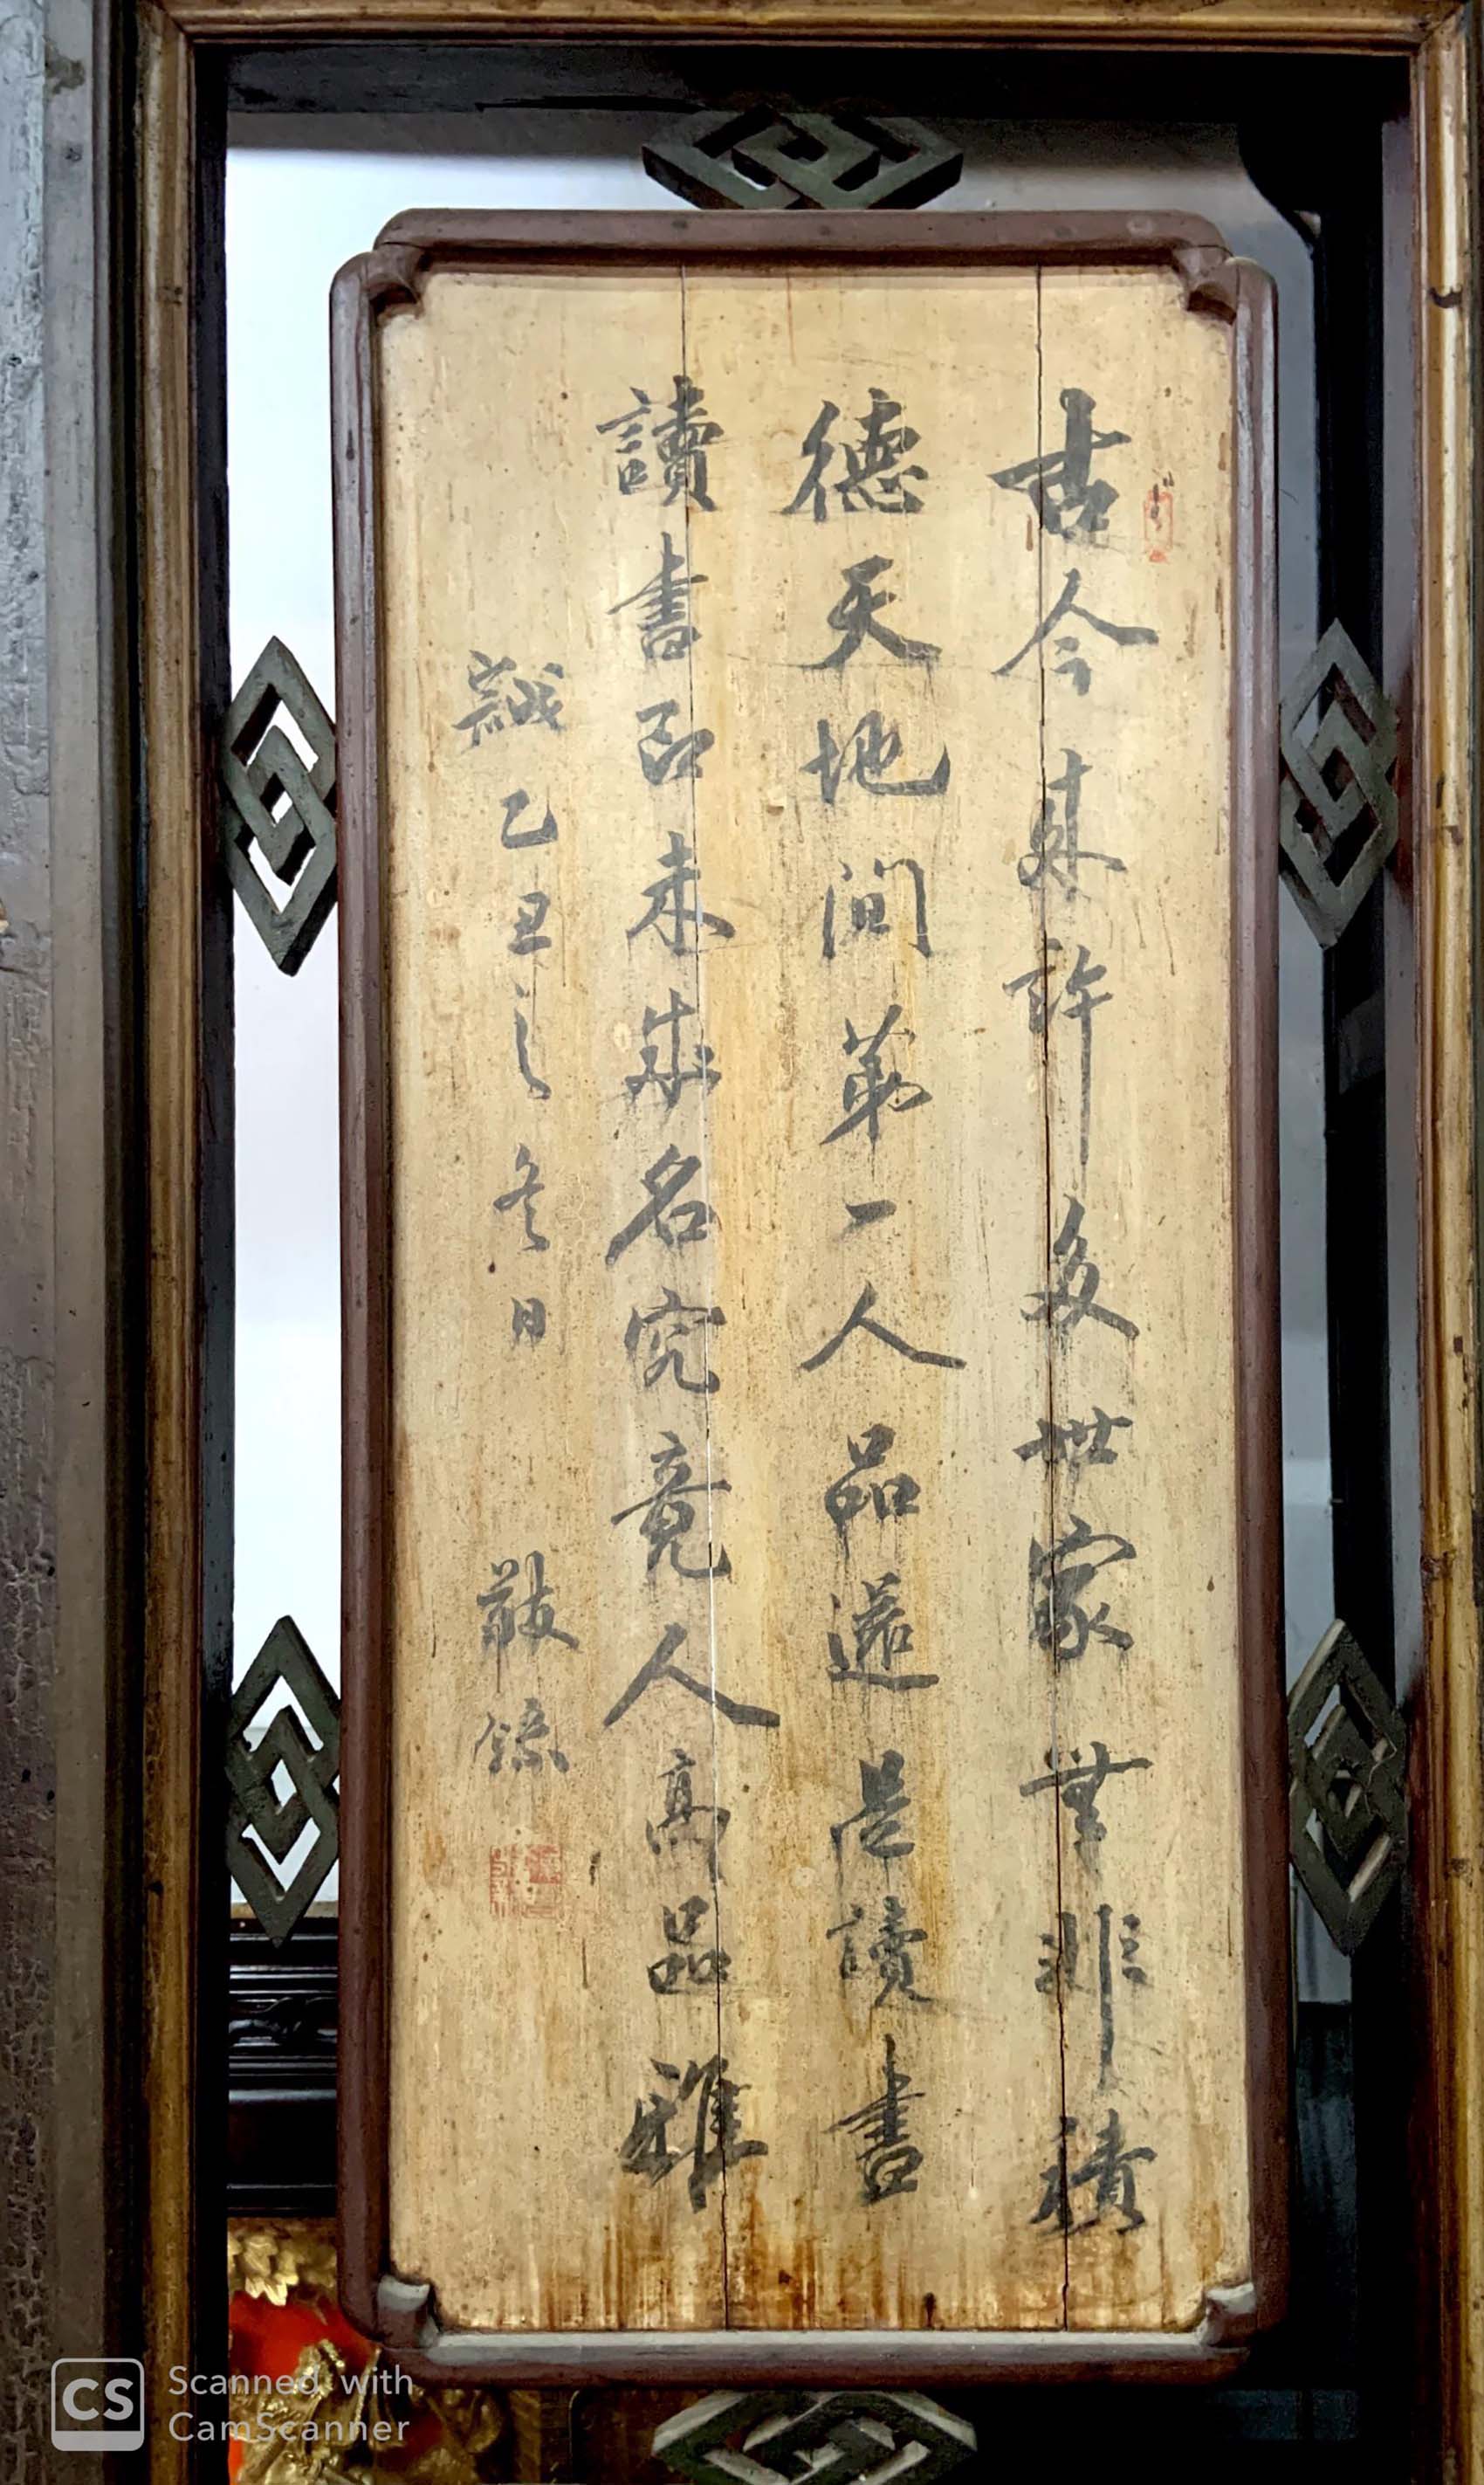 古今来許多世家無非積
德天地間第一人品還是讀書
讀書即未成名究竟人高品雅
歲乙丑之冬日 敬錄
CS Scanned with
CamScanner